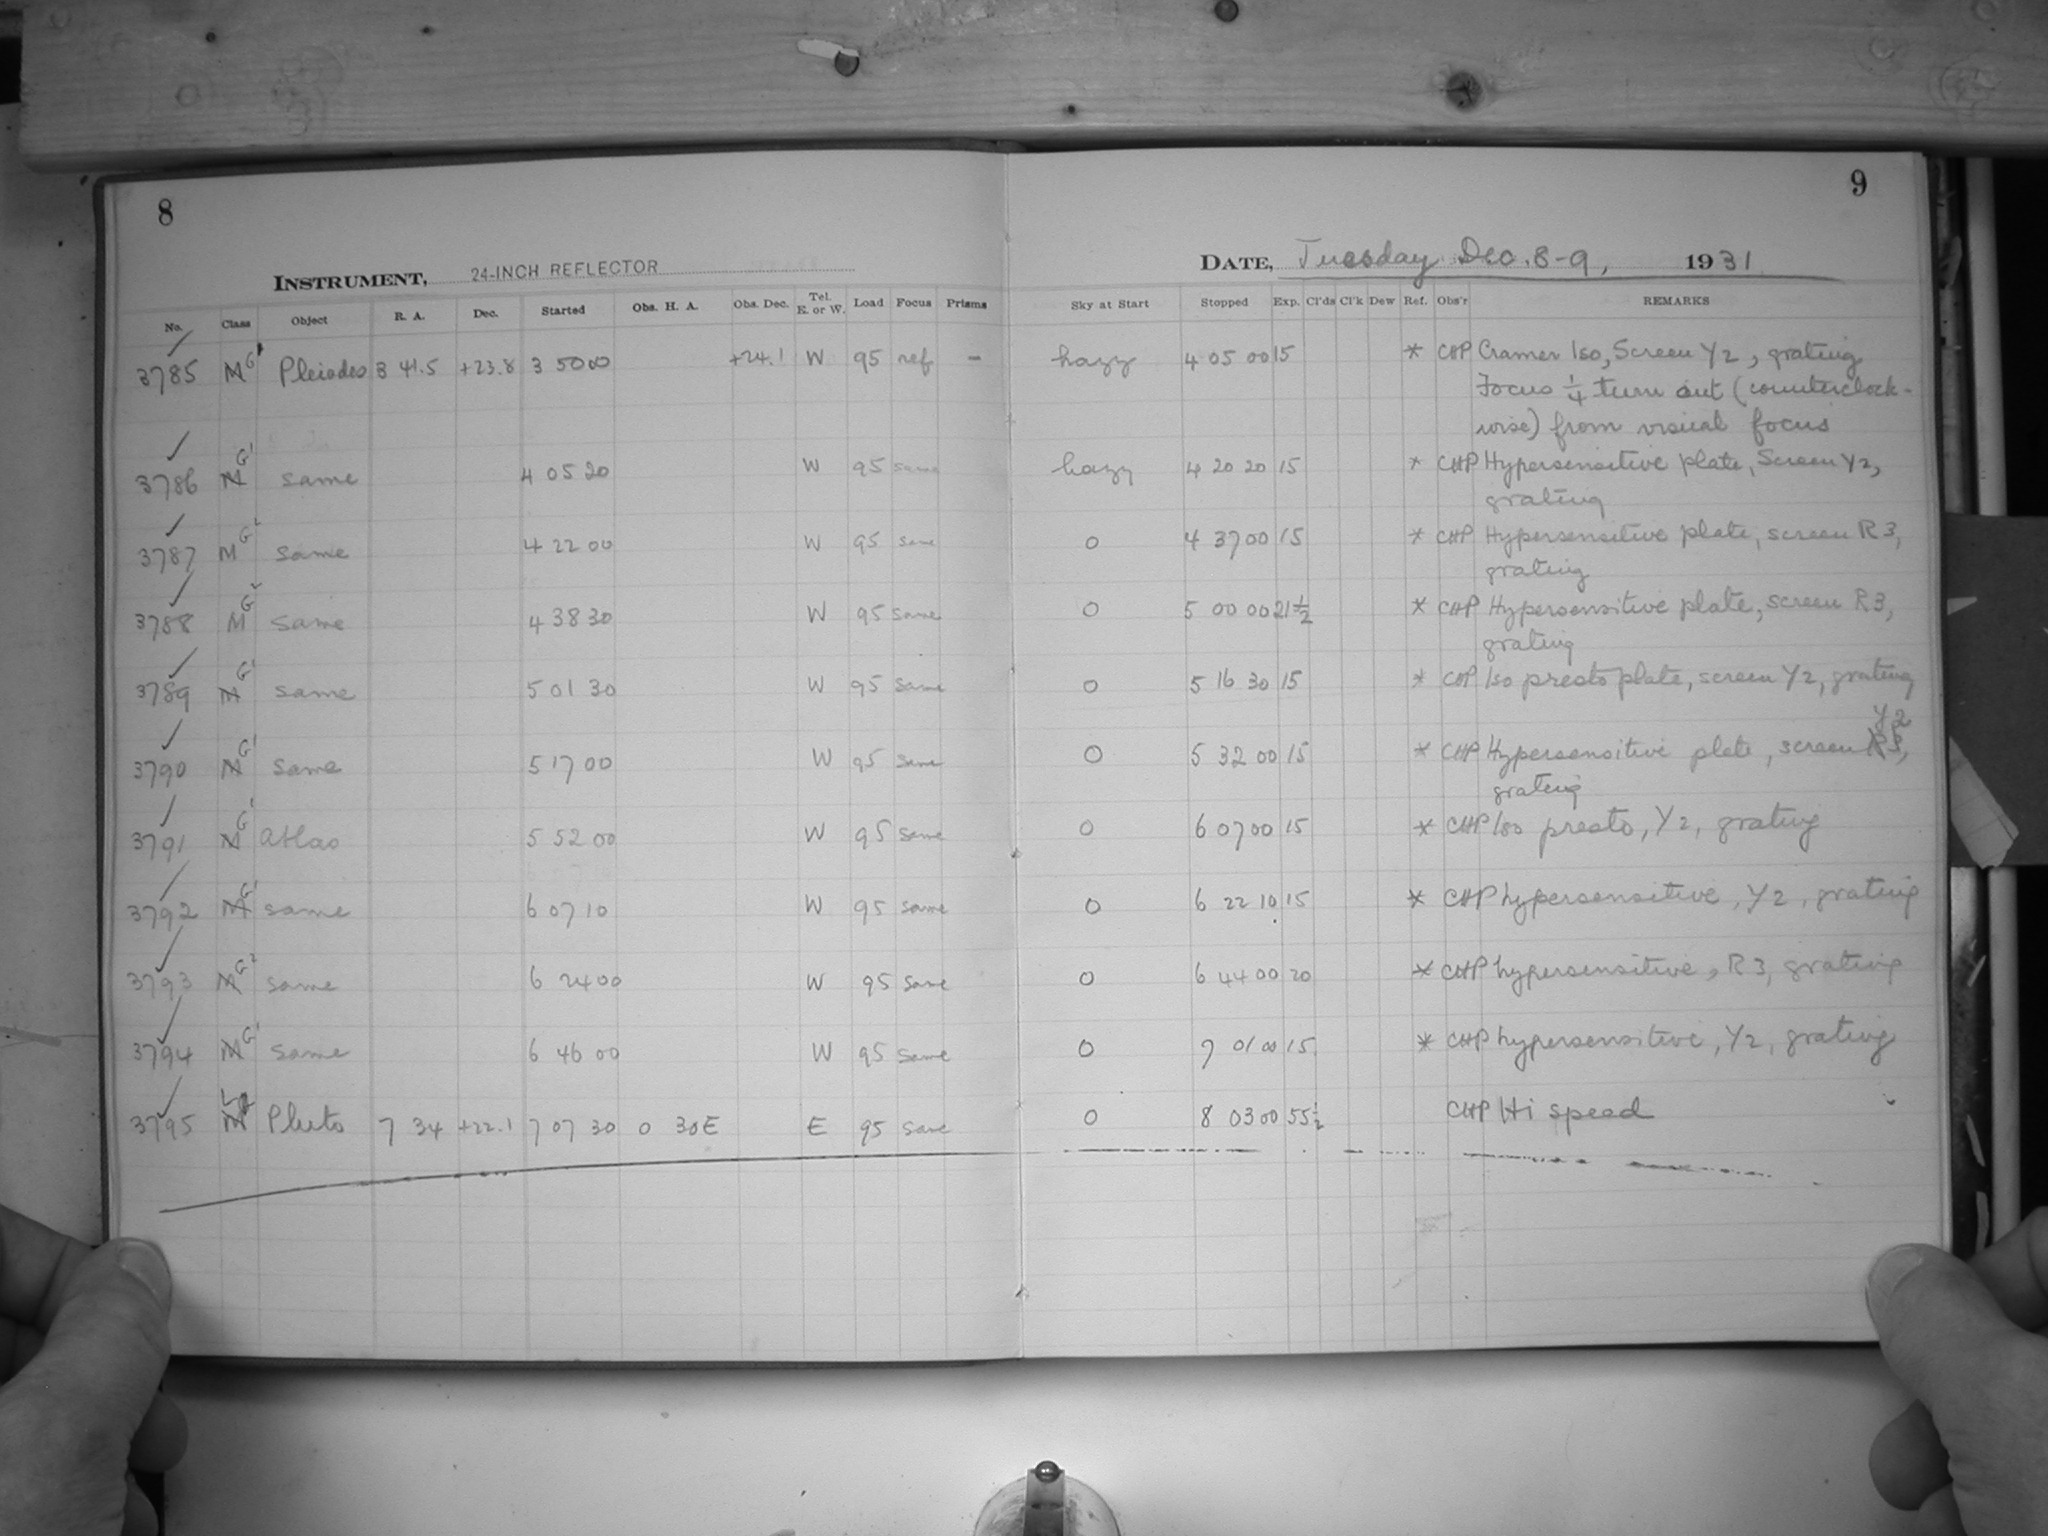 8
INSTRUMENT, 24-INCH REFLECTOR
No. Class Object R. A. Dec. Started Obs. H. A. Obs. Dec. Tel. E. or W. Load Focus Prisms
3785 M G' Pleiades 3 41.5 +23.8 3 50 00 +24.1 W 95 ref —
3786 M G' same 4 05 20 W 95 same
3787 M G² same 4 22 00 W 95 same
3788 M G² same 4 38 30 W 95 same
3789 M G' same 5 01 30 W 95 same
3790 M G' same 5 17 00 W 95 same
3791 M G' Atlas 5 52 00 W 95 same
3792 M G' same 6 07 10 W 95 same
3793 M G² same 6 24 00 W 95 same
3794 M G' same 6 46 00 W 95 same
3795 Pluto 7 34 +22.1 7 07 30 0 30E E 95 same
9
DATE, Tuesday Dec. 8-9, 1931
Sky at Start Stopped Exp. Cl'ds Cl'k Dew Ref. Obs'r REMARKS
hazy 4 05 00 15 * CHP Cramer Iso, Screen Y2, grating
Focus 1/4 turn out (counterclock-
wise) from visual focus
hazy 4 20 20 15 * CHP Hypersensitive plate, Screen Y2,
grating
0 4 37 00 15 * CHP Hypersensitive plate, screen R3,
grating
0 5 00 00 21 1/2 * CHP Hypersensitive plate, screen R3,
grating
0 5 16 30 15 * CHP Iso presto plate, screen Y2, grating
Y2
0 5 32 00 15 * CHP Hypersensitive plate, screen R3,
grating
0 6 07 00 15 * CHP Iso presto, Y2, grating
0 6 22 10 15 * CHP hypersensitive, Y2, grating
0 6 44 00 20 * CHP hypersensitive, R3, grating
0 7 01 00 15 * CHP hypersensitive, Y2, grating
0 8 03 00 55 1/2 CHP Hi speed